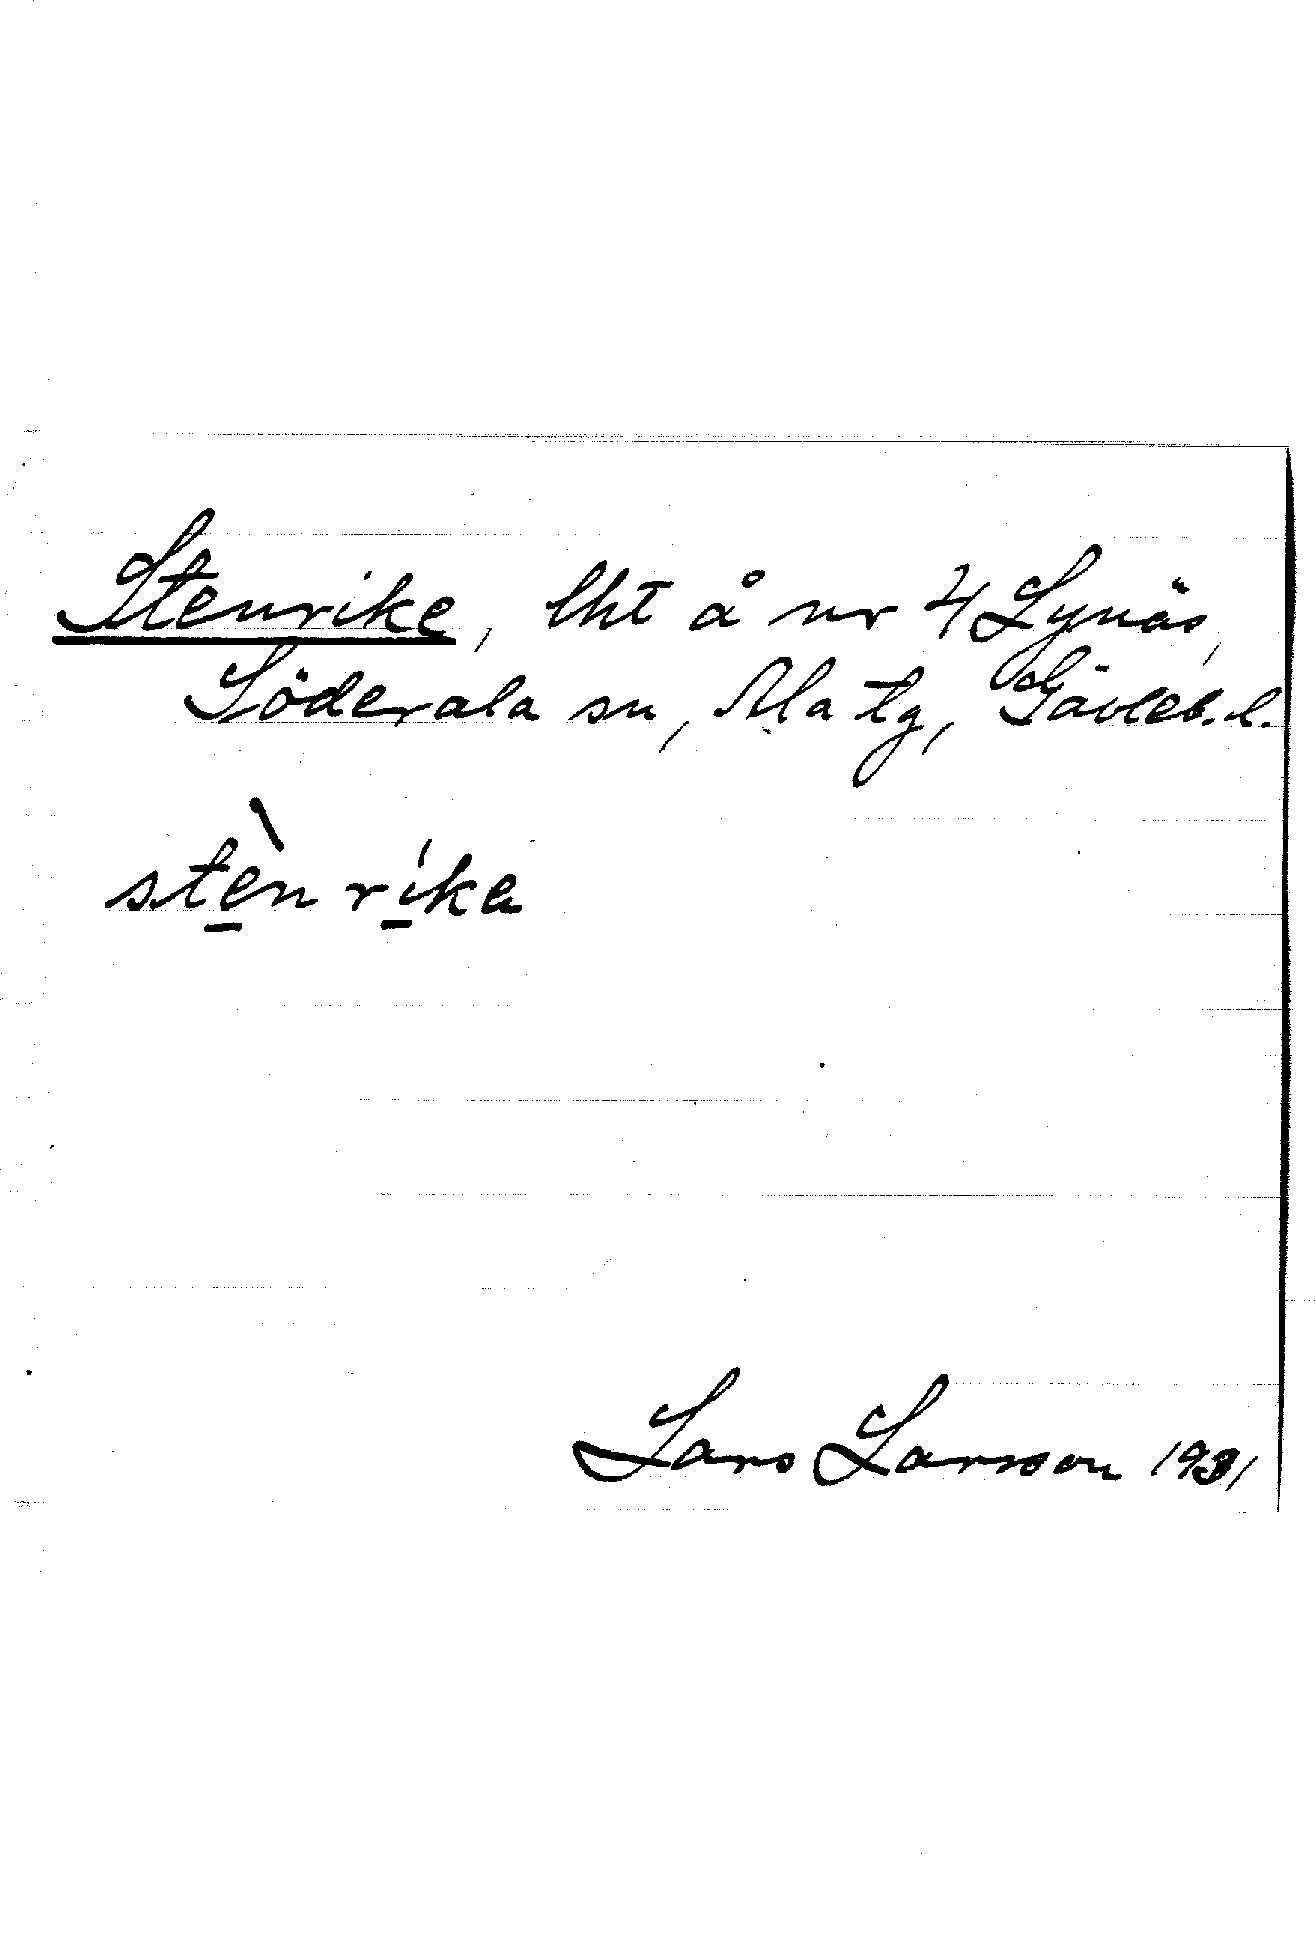 Stenrike, lht å nr 4 Lynäs,
Söderala sn, Ala tg, Gävleb. l.
stèn ríka
Lars Larsson 1931